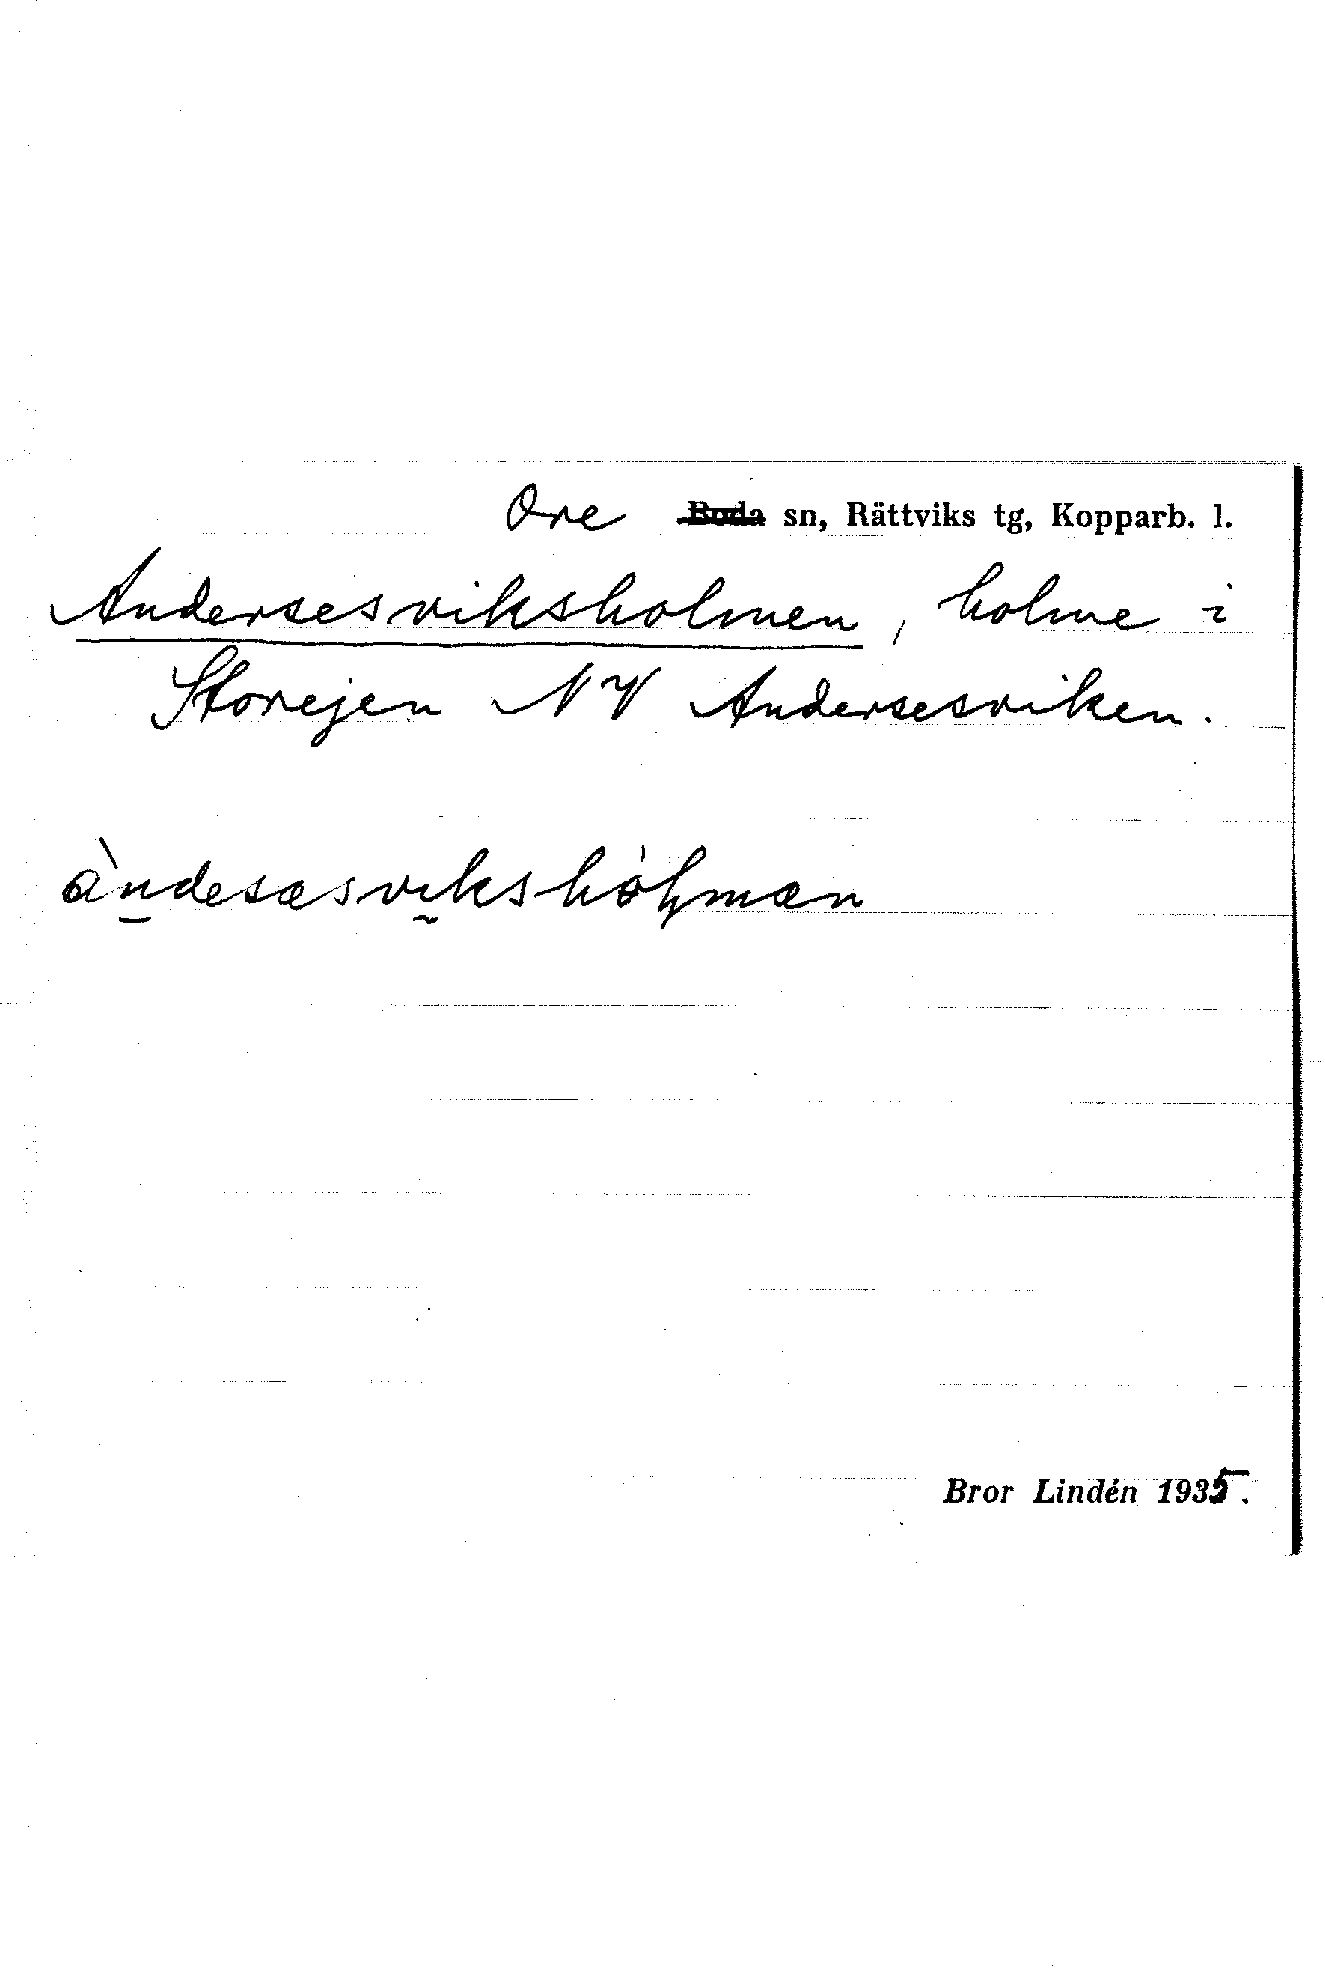 Ore Boda sn, Rättviks tg, Kopparb. l.
Andersesviksholmen, holme i
Storejen NV Andersesviken.
àndesæsvikshòɫmæn
Bror Lindén 1935.